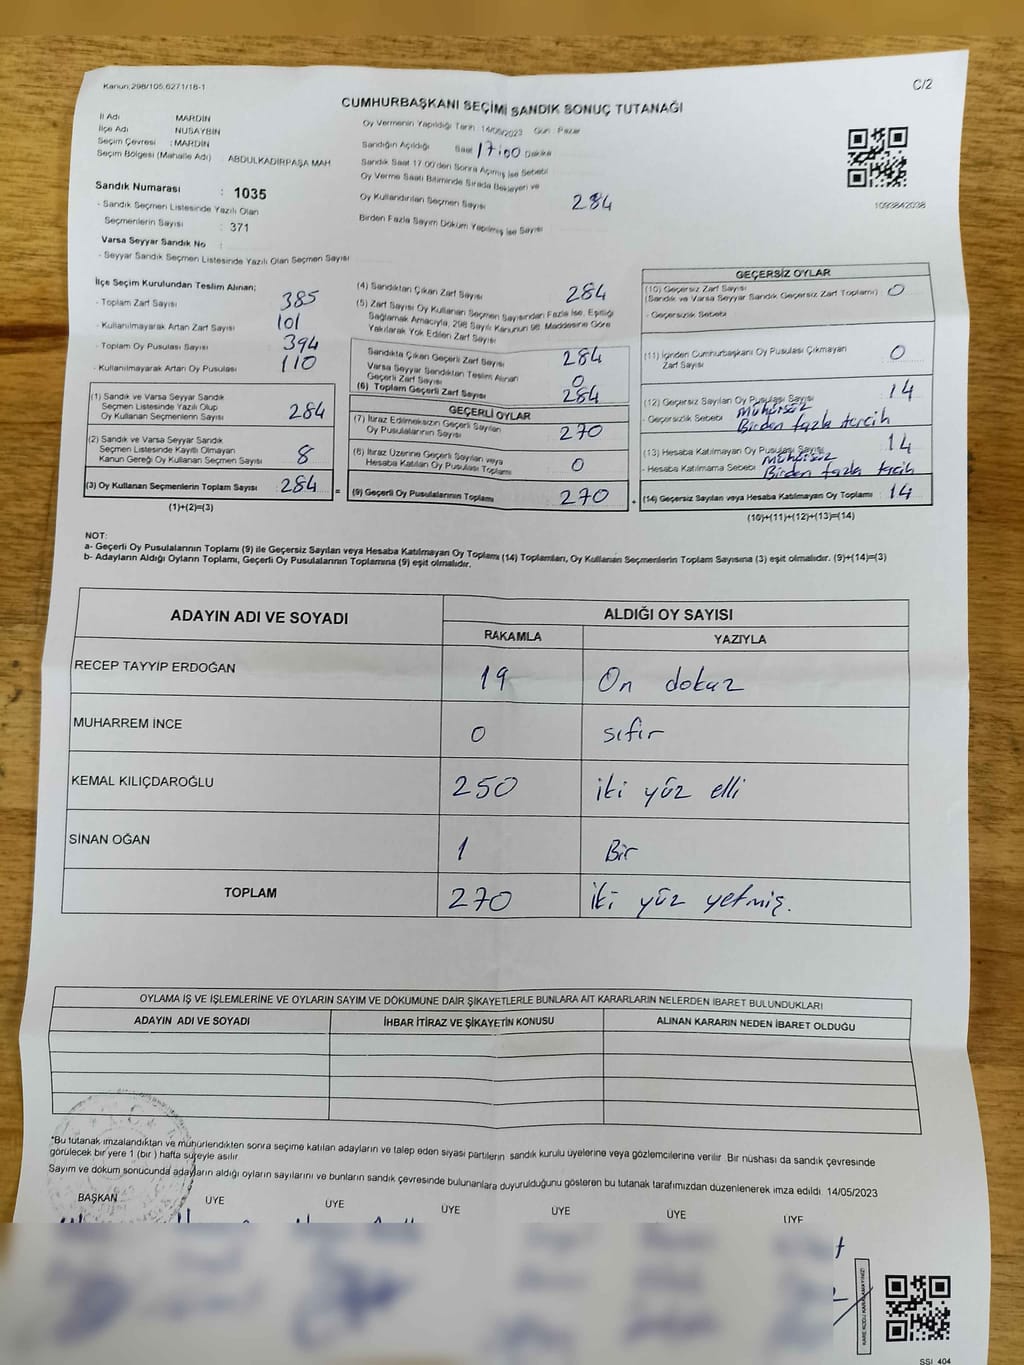 Kanun;298/105,6271/18-1
C/2
CUMHURBAŞKANI SEÇİMİ SANDIK SONUÇ TUTANAĞI
İl Adı MARDİN
İlçe Adı NUSAYBİN
Seçim Çevresi : MARDİN
Seçim Bölgesi (Mahalle Adı) ABDULKADİRPAŞA MAH
Sandık Numarası : 1035
- Sandık Seçmen Listesinde Yazılı Olan
Seçmenlerin Sayısı : 371
Varsa Seyyar Sandık No :
- Seyyar Sandık Seçmen Listesinde Yazılı Olan Seçmen Sayısı
Oy Vermenin Yapıldığı Tarih : 14/05/2023 Gün : Pazar
Sandığın Açıldığı Saat 17:00 Dakika
Sandık Saat 17.00'den Sonra Açılmış İse Sebebi
Oy Verme Saati Bitiminde Sırada Bekleyen ve
Oy Kullandırılan Seçmen Sayısı 284
Birden Fazla Sayım Döküm Yapılmış İse Sayısı
1093842038
İlçe Seçim Kurulundan Teslim Alınan;
- Toplam Zarf Sayısı 385
- Kullanılmayarak Artan Zarf Sayısı 101
- Toplam Oy Pusulası Sayısı 394
- Kullanılmayarak Artan Oy Pusulası 110
(1) Sandık ve Varsa Seyyar Sandık
Seçmen Listesinde Yazılı Olup
Oy Kullanan Seçmenlerin Sayısı 284
(2) Sandık ve Varsa Seyyar Sandık
Seçmen Listesinde Kayıtlı Olmayan
Kanun Gereği Oy Kullanan Seçmen Sayısı 8
(3) Oy Kullanan Seçmenlerin Toplam Sayısı 284 =
(1)+(2)=(3)
(4) Sandıktan Çıkan Zarf Sayısı 284
(5) Zarf Sayısı Oy Kullanan Seçmen Sayısından Fazla İse, Eşitliği
Sağlamak Amacıyla, 298 Sayılı Kanunun 98. Maddesine Göre
Yakılarak Yok Edilen Zarf Sayısı
Sandıkta Çıkan Geçerli Zarf Sayısı 284
Varsa Seyyar Sandıktan Teslim Alınan
Geçerli Zarf Sayısı 0
(6) Toplam Geçerli Zarf Sayısı 284
GEÇERLİ OYLAR
(7) İtiraz Edilmeksizin Geçerli Sayılan
Oy Pusulalarının Sayısı 270
(8) İtiraz Üzerine Geçerli Sayılan veya
Hesaba Katılan Oy Pusulası Toplamı 0
(9) Geçerli Oy Pusulalarının Toplamı 270 +
GEÇERSİZ OYLAR
(10) Geçersiz Zarf Sayısı 0
(Sandık ve Varsa Seyyar Sandık Geçersiz Zarf Toplamı)
- Geçersizlik Sebebi
(11) İçinden Cumhurbaşkanı Oy Pusulası Çıkmayan
Zarf Sayısı 0
(12) Geçersiz Sayılan Oy Pusulası Sayısı 14
- Geçersizlik Sebebi mühürsüz
Birden fazla tercih
(13) Hesaba Katılmayan Oy Pusulası Sayısı 14
- Hesaba Katılmama Sebebi mühürsüz
Birden fazla tercih
(14) Geçersiz Sayılan veya Hesaba Katılmayan Oy Toplamı 14
(10)+(11)+(12)+(13)=(14)
NOT:
a- Geçerli Oy Pusulalarının Toplamı (9) ile Geçersiz Sayılan veya Hesaba Katılmayan Oy Toplamı (14) Toplamları, Oy Kullanan Seçmenlerin Toplam Sayısına (3) eşit olmalıdır. (9)+(14)=(3)
b- Adayların Aldığı Oyların Toplamı, Geçerli Oy Pusulalarının Toplamına (9) eşit olmalıdır.
ADAYIN ADI VE SOYADI ALDIĞI OY SAYISI
RAKAMLA YAZIYLA
RECEP TAYYIP ERDOĞAN 19 On dokuz
MUHARREM İNCE 0 sıfır
KEMAL KILIÇDAROĞLU 250 iki yüz elli
SİNAN OĞAN 1 Bir
TOPLAM 270 iki yüz yetmiş.
OYLAMA İŞ VE İŞLEMLERİNE VE OYLARIN SAYIM VE DÖKÜMÜNE DAİR ŞİKAYETLERLE BUNLARA AİT KARARLARIN NELERDEN İBARET BULUNDUKLARI
ADAYIN ADI VE SOYADI İHBAR İTİRAZ VE ŞİKAYETİN KONUSU ALINAN KARARIN NEDEN İBARET OLDUĞU
*Bu tutanak imzalandıktan ve mühürlendikten sonra seçime katılan adayların ve talep eden siyasi partilerin sandık kurulu üyelerine veya gözlemcilerine verilir. Bir nüshası da sandık çevresinde
görülecek bir yere 1 (bir) hafta süreyle asılır
Sayım ve döküm sonucunda adayların aldığı oyların sayılarını ve bunların sandık çevresinde bulunanlara duyurulduğunu gösteren bu tutanak tarafımızdan düzenlenerek imza edildi. 14/05/2023
BAŞKAN ÜYE ÜYE ÜYE ÜYE ÜYE ÜYE
KARE KODU KARALAMAYINIZ!
SSI_404